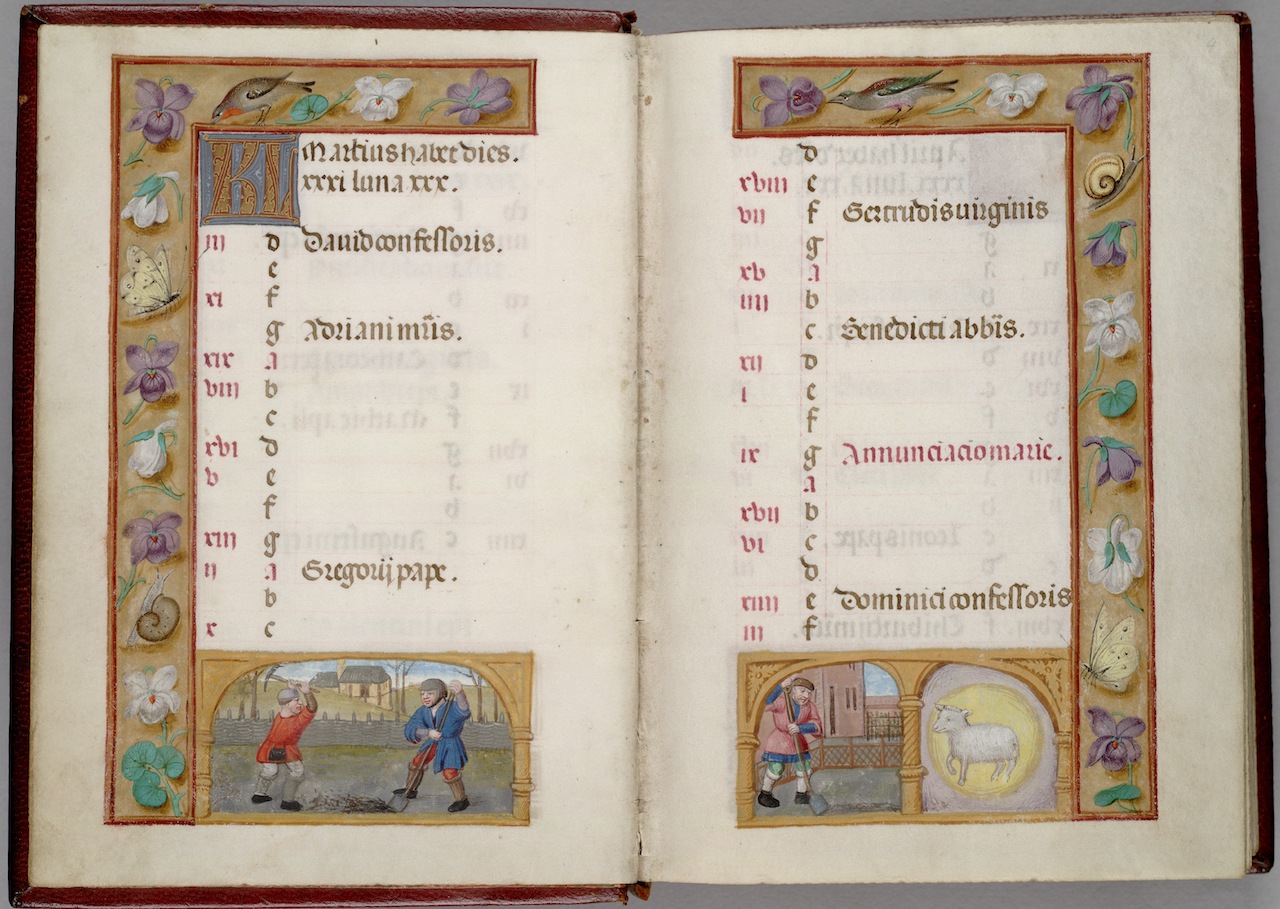 KL Martius habet dies.
xxxi luna xxx.
iii d Dauid confessoris.
e
xi f
g Adriani mr̄is.
xix a
viii b
c
xvi d
v e
f
xiii g
ii a Gregorij pape.
b
x c
d
xviii e
vii f Gertrudis uirginis
g
xv a
iiii b
c Benedicti abb̄is.
xii d
i e
f
ix g Annunciacio marie.
a
xvii b
vi c
d
xiiii e Dominici confessoris
iii f